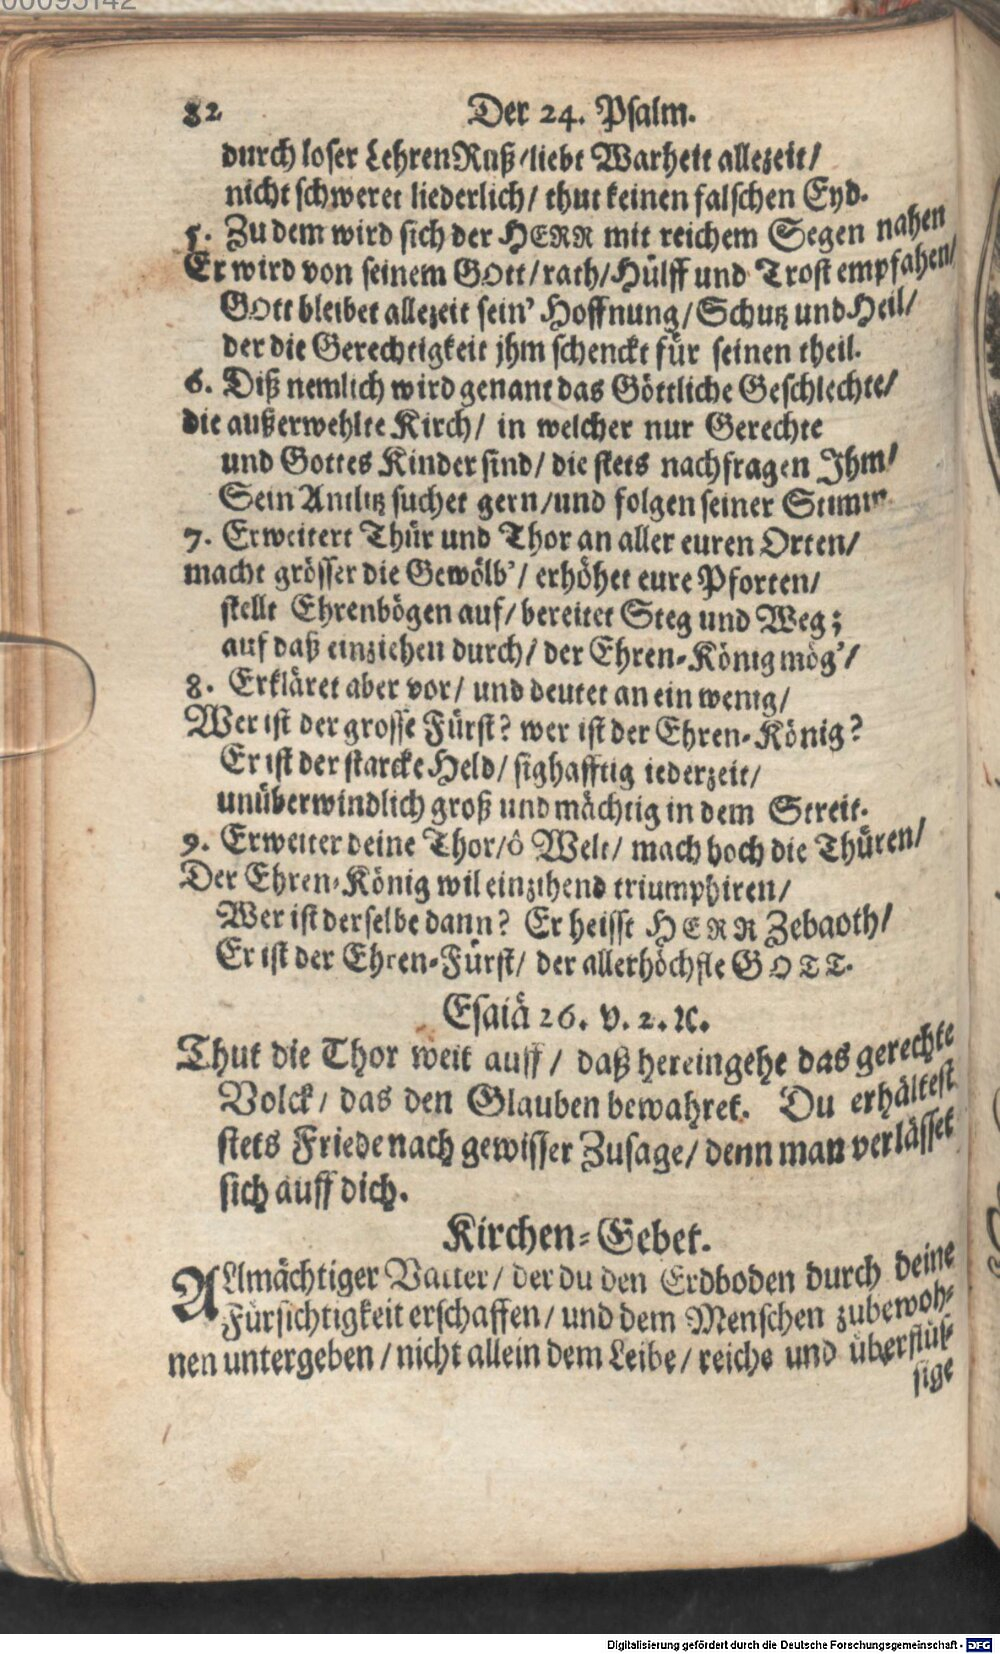 00095142
82 Der 24. Psalm.
durch loser Lehren Ruß/liebt Warheit allezeit/
nicht schweret liederlich/ thut keinen falschen Eyd.
5. Zu dem wird sich der HERR mit reichem Segen nahen
Er wird von seinem GOtt/rath/Hülff und Trost empfahen/
GOtt bleibet allezeit sein' Hoffnung/Schutz und Heil/
der die Gerechtigkeit jhm schenckt für seinen theil.
6. Diß nemlich wird genant das Göttliche Geschlechte/
die außerwehlte Kirch/ in welcher nur Gerechte
und Gottes Kinder sind/ die stets nachfragen Ihm/
Sein Antlitz suchet gern/und folgen seiner Stimm
7. Erweitert Thür und Thor an aller euren Orten/
macht grösser die Gewölb'/ erhöhet eure Pforten/
stellt Ehrenbögen auf/ bereitet Steg und Weg;
auf daß einziehen durch/ der Ehren-König mög'/
8. Erkläret aber vor/ und deutet an ein wenig/
Wer ist der grosse Fürst? wer ist der Ehren-König?
Er ist der starcke Held/ sighafftig iederzeit/
unüberwindlich groß und mächtig in dem Streit.
9. Erweiter deine Thor/ô Welt/ mach hoch die Thüren/
Der Ehren-König wil einzihend triumphiren/
Wer ist derselbe dann? Er heisst HERR Zebaoth/
Er ist der Ehren-Fürst/ der allerhöchste GOTT.
Esaiä 26. v. 2. ꝛc.
Thut die Thor weit auff/ daß hereingehe das gerechte
Volck/ das den Glauben bewahret. Du erhältest
stets Friede nach gewisser Zusage/ denn man verlässet
sich auff dich.
Kirchen-Gebet.
ALlmächtiger Vatter/ der du den Erdboden durch deine
Fürsichtigkeit erschaffen/ und dem Menschen zubewoh-
nen untergeben/nicht allein dem Leibe/ reiche und überflüs-
sige
Digitalisierung gefördert durch die Deutsche Forschungsgemeinschaft - DFG